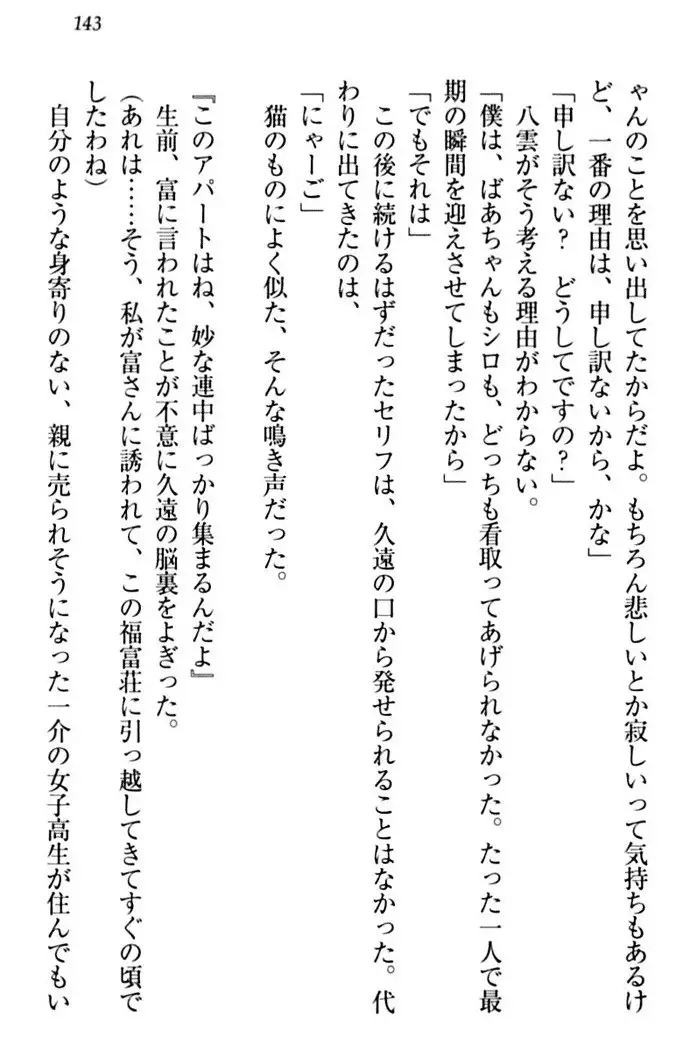 143
ゃんのことを思い出してたからだよ。もちろん悲しいとか寂しいって気持ちもあるけ
ど、一番の理由は、申し訳ないから、かな」
「申し訳ない？　どうしてですの？」
　八雲がそう考える理由がわからない。
「僕は、ばあちゃんもシロも、どっちも看取ってあげられなかった。たった一人で最
期の瞬間を迎えさせてしまったから」
「でもそれは」
　この後に続けるはずだったセリフは、久遠の口から発せられることはなかった。代
わりに出てきたのは、
「にゃーご」
　猫のものによく似た、そんな鳴き声だった。
『このアパートはね、妙な連中ばっかり集まるんだよ』
　生前、富に言われたことが不意に久遠の脳裏をよぎった。
（あれは……そう、私が富さんに誘われて、この福富荘に引っ越してきてすぐの頃で
したわね）
　自分のような身寄りのない、親に売られそうになった一介の女子高生が住んでもい